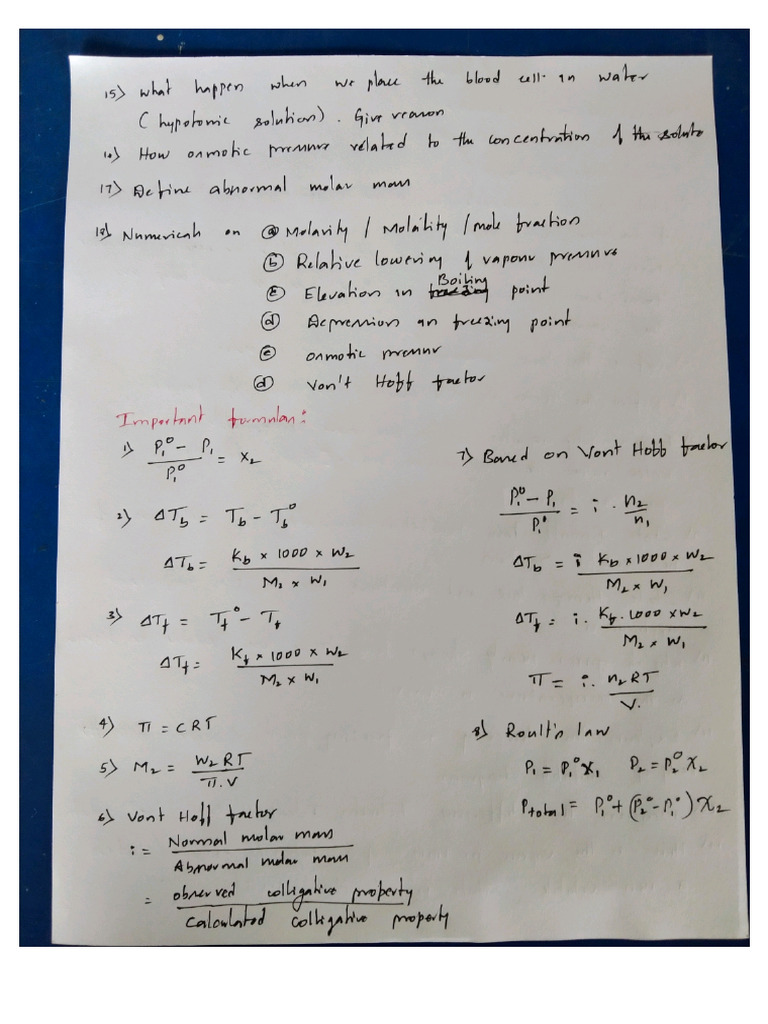 15) What happen when we place the blood cell in water
(hypotonic solution). Give reason
16) How osmotic pressure related to the concentration of the solute
17) Define abnormal molar mass
18) Numericals on (a) Molarity / Molality / mole fraction
(b) Relative lowering of vapour pressure
(c) Elevation in Boiling point
(d) Depression in freezing point
(e) osmotic pressure
(d) Von't Hoff factor
Important formulas:
1) (P₁⁰ - P₁) / P₁⁰ = x₂
2) ΔT_b = T_b - T_b⁰
ΔT_b = (K_b × 1000 × W₂) / (M₂ × W₁)
3) ΔT_f = T_f⁰ - T_f
ΔT_f = (K_f × 1000 × W₂) / (M₂ × W₁)
4) π = CRT
5) M₂ = (W₂RT) / (π.V)
6) Vont Hoff factor
i = Normal molar mass / Abnormal molar mass
= observed colligative property / Calculated colligative property
7) Based on Vont Hoff factor
(P₁⁰ - P₁) / P₁⁰ = i . n₂ / n₁
ΔT_b = i (K_b × 1000 × W₂) / (M₂ × W₁)
ΔT_f = i. (K_f . 1000 × W₂) / (M₂ × W₁)
π = i. n₂RT / V.
8) Roult's law
P₁ = P₁⁰x₁ P₂ = P₂⁰x₂
P_total = P₁⁰ + (P₂⁰ - P₁⁰) x₂